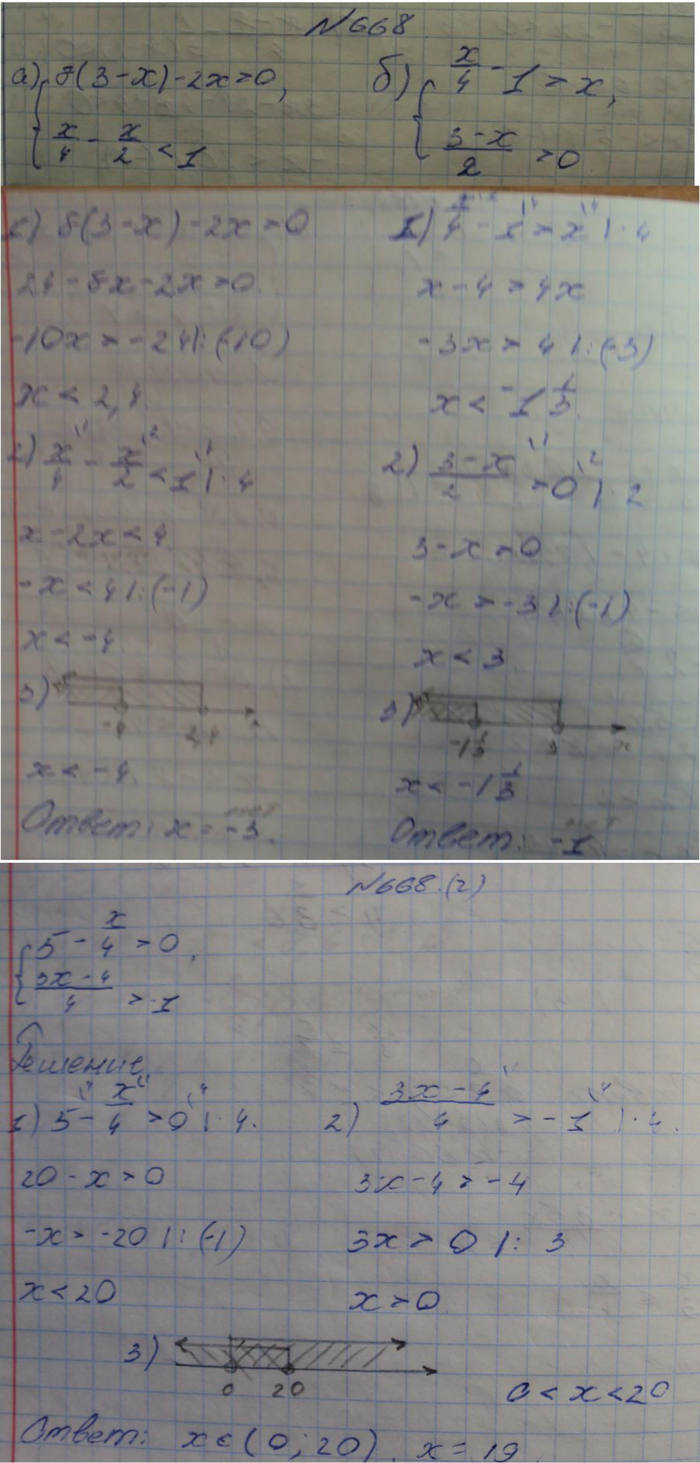 №668
а) { 8(3-x)-2x>0,
x/4 - x/2 < 1
б) { x/4 - 1 > x,
(3-x)/2 > 0
1) 8(3-x)-2x>0
24-8x-2x>0
-10x > -24 |:(-10)
x < 2,4
2) x/4 - x/2 < 1 |·4
x-2x<4
-x < 4 |:(-1)
x < -4
3)
-4 2,4 x
x < -4
Ответ: x = -3.
1) x/4 - 1 > x |·4
x-4>4x
-3x > 4 |:(-3)
x < -1 1/3
2) (3-x)/2 > 0 |·2
3-x>0
-x > -3 |:(-1)
x < 3
3)
-1 1/3 3 x
x < -1 1/3
Ответ: -1
№668.(2)
{ 5 - x/4 > 0,
(3x-4)/4 > -1
Решение
1) 5 - x/4 > 0 |·4.
20-x>0
-x > -20 |:(-1)
x<20
2) (3x-4)/4 > -1 |·4.
3x-4>-4
3x > 0 |: 3
x>0
3)
0 20
0 < x < 20
Ответ: x ∈ (0; 20) x = 19